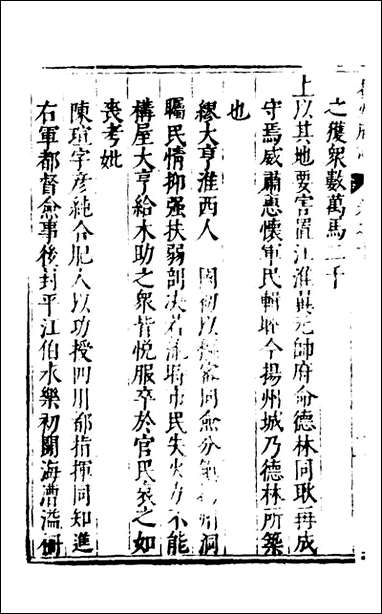 之獲衆數萬馬二千
上以其地要害置江淮翼元帥府命德林同耿再成
守焉威肅惠懷軍民輯睦今揚州城乃德林所築
也
繆大亨淮西人 國初以 同僉 洞
矚民情抑强扶弱剖决若流時市民失火力不能
構屋大亨給木助之衆皆悦服卒於官民哀之如
喪考妣
陳瑄字彦純合肥人以功授四川都指揮同知進
右軍都督僉事後封平江伯永樂初開海漕溢